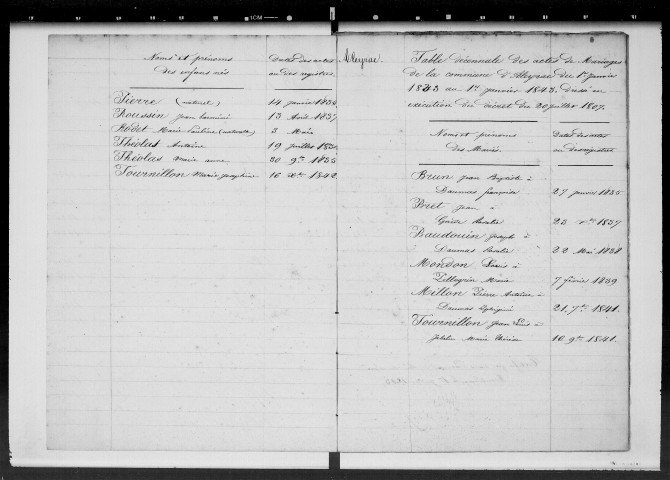 1CM
Noms et prénoms
des enfans nés
Dates des actes
ou des registres
Pierre (naturel) 14 janvier
Roussin Jean 13 Août 1837
Rodet Marie Pauline (naturelle) 3 Mars
Théolas Antoine 19 juillet
Théolas Marie anne 20 9bre 1835
Tournillon Marie Joséphine 16 Xbre 1842
Aleyrac.
Table décennale des actes de Mariages
de la commune d'Aleyrac du 1er janvier
1833 au 1er janvier 1843. dressé en
exécution du décret du 20 juillet 1807.
Noms et prénoms
des Mariés.
Dates des actes
ou des registres
Brun Jean Baptiste à
Daumas françoise 27 janvier 1835
Bret Jean à
Rosalie 23 1837
Baudouin Joseph à
Daumas Rosalie 22 Mai 1838
Mondon Louis à
Pellegrin Marie 7 février 1839
Millon Pierre Antoine à
Daumas 21 7bre 1841.
Tournillon Jean Louis à
Marie 16 9bre 1841.